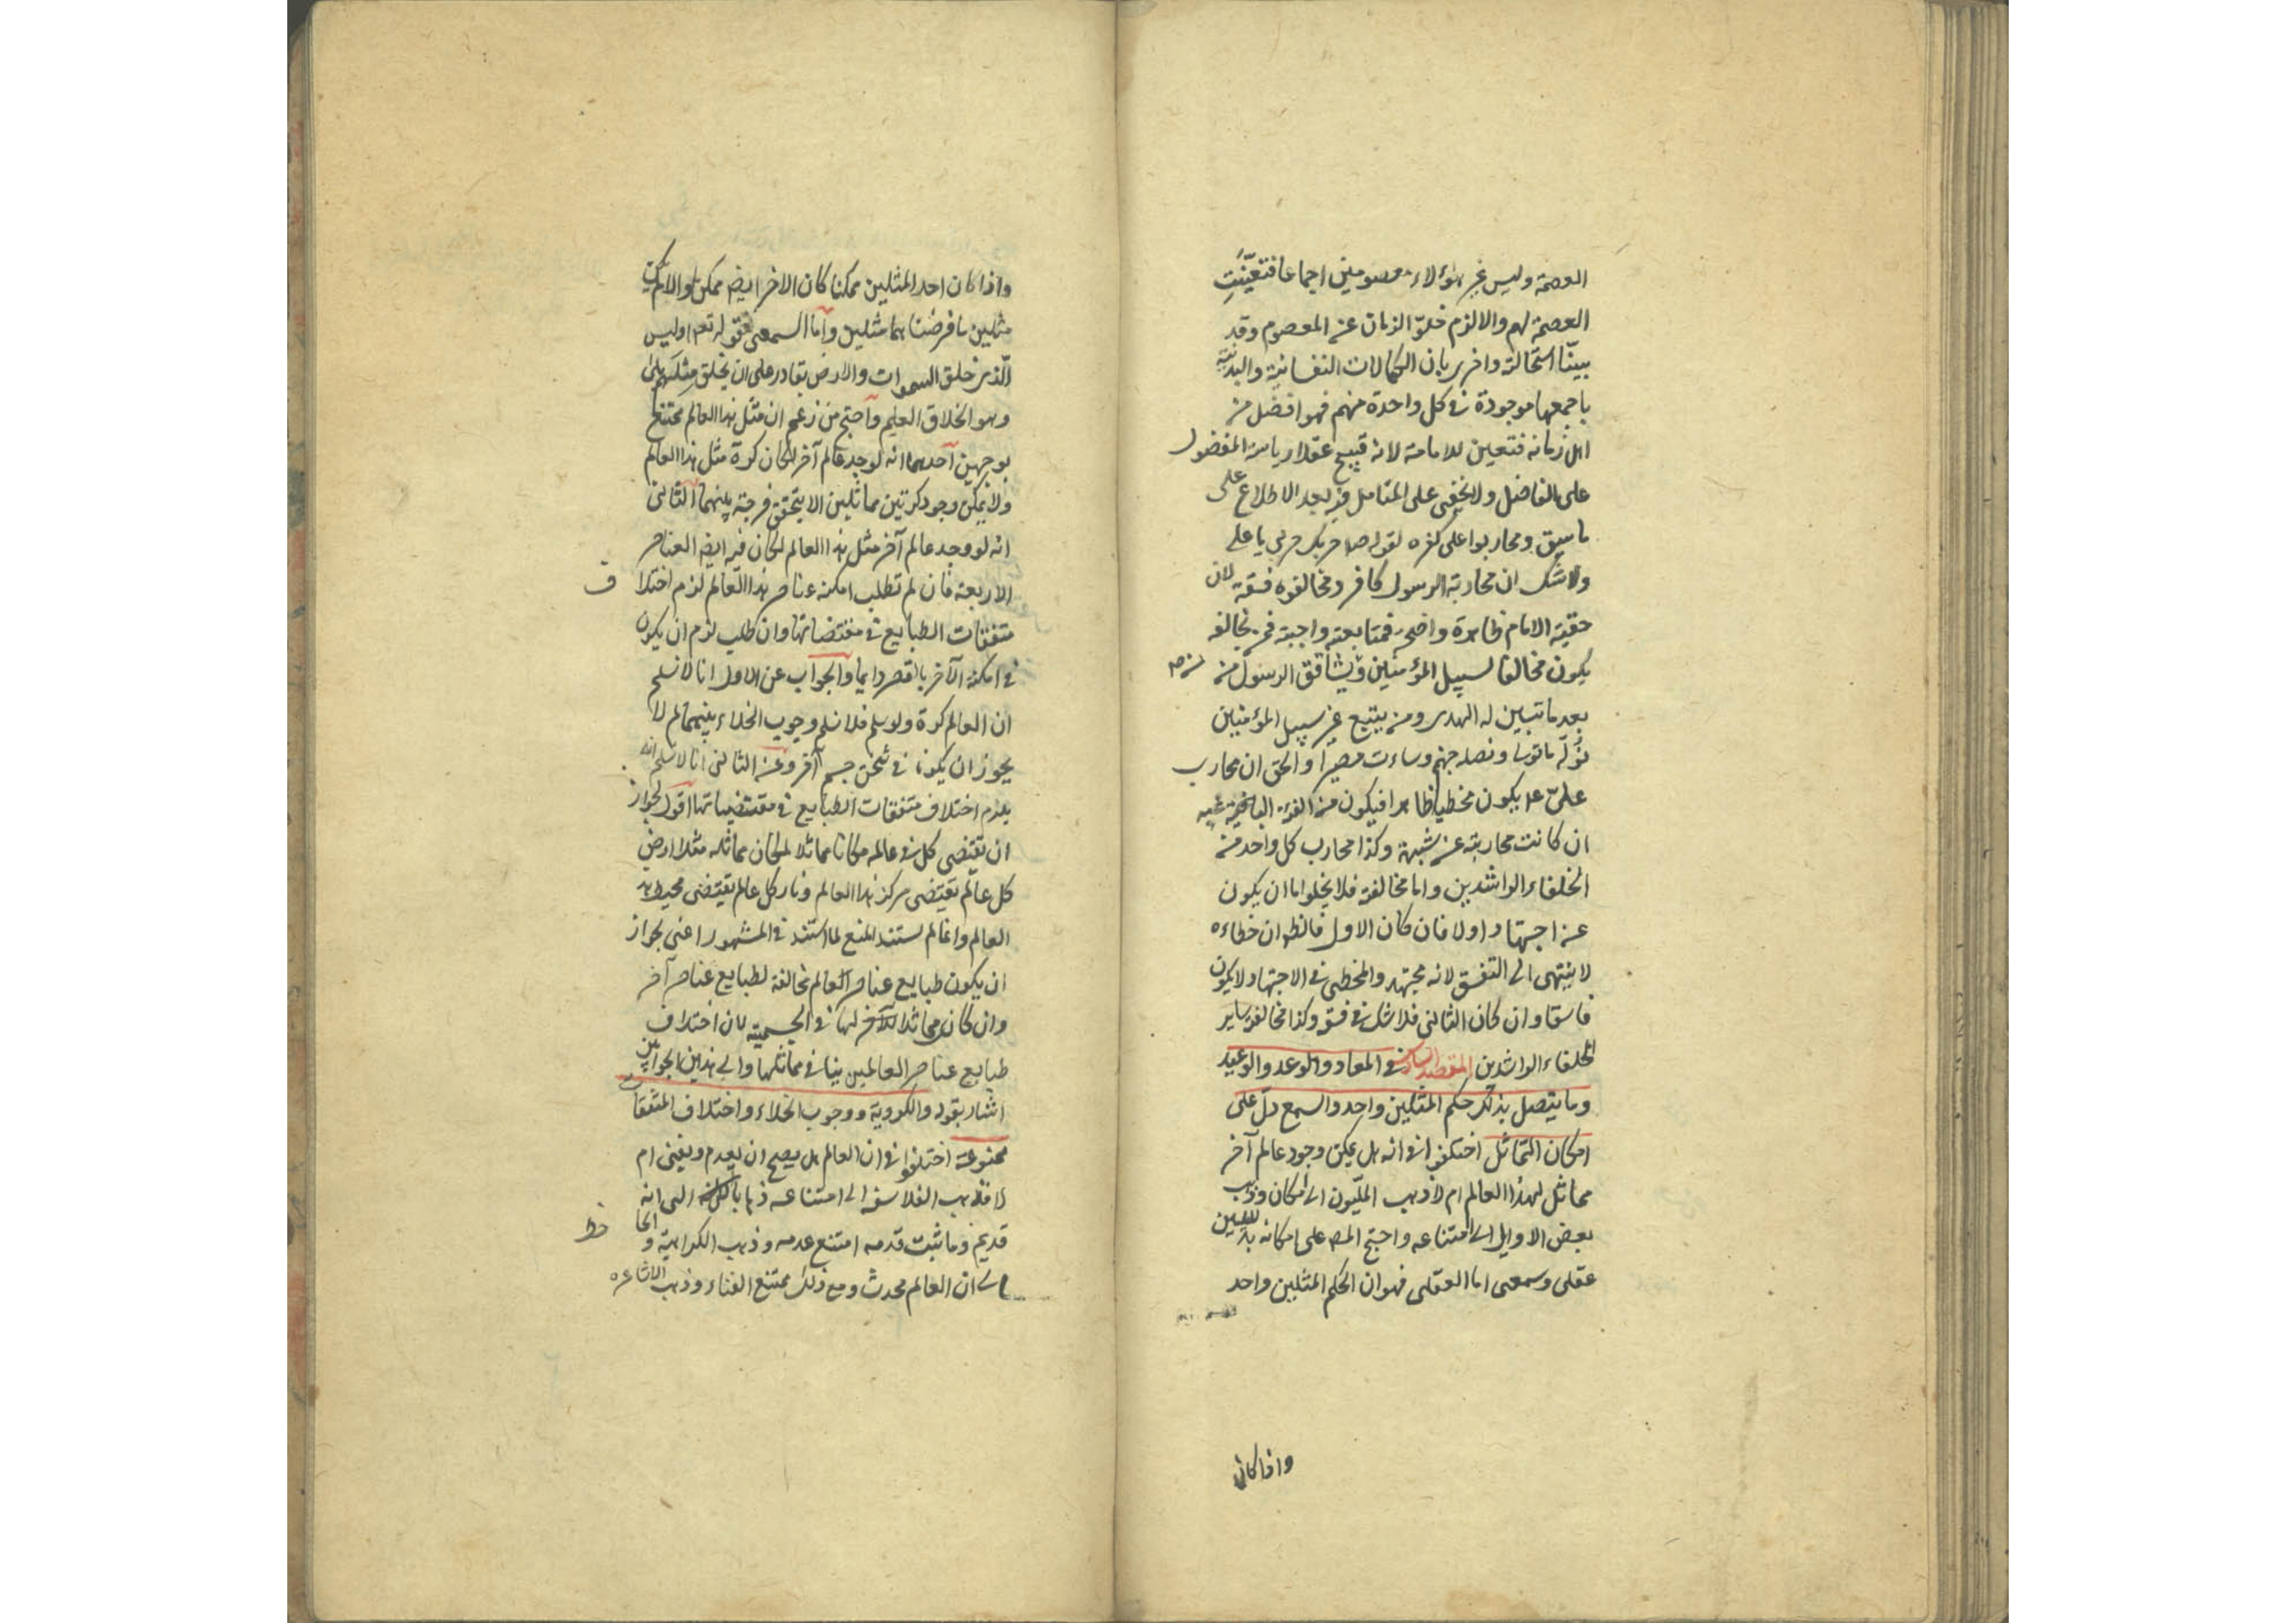 العصمة وليس غير هؤلاء معصومين اجماعا فتعيّنت
العصمة لهم والا لزم خلوّ الزمان عن المعصوم وقد
بيّنّا استحالته واخرى بان الكمالات النفسانية والبدنية
باجمعها موجودة في كل واحدة منهم فهو افضل من
اهل زمانه فتعين للامامة لانه قبيح عقلا رياسة المفضول
على الفاضل ولا يخفى على المتأمل فيه بعد الاطلاع على
ما سبق ومحاربوا على كفره لقوله صلعم حربك حربي يا على
ولا شك ان محاربة الرسول كافر ومخالفوه فسقة لان
حقية الامام ظاهرة واضحة فمتابعته واجبة فمن يخالفه
يكون مخالفا لسبيل المؤمنين ومن يشاقق الرسول من
بعد ما تبين له الهدى ومن يتبع غير سبيل المؤمنين
نولّه ما تولى ونصله جهنم وساءت مصيرا والحق ان محارب
علىّ عم يكون مخطيا ظاهرا فيكون من الفئة الباغية
ان كانت محاربته عن شبهة وكذا محارب كل واحد من
الخلفاء الراشدين واما مخالفة فلا يخلو اما ان يكون
عن اجتهاد او لا فان كان الاول فالظ ان خطاءه
لا ينتهى الى التفسق لانه مجتهد والمخطى في الاجتهاد لا يكون
فاسقا وان كان الثانى فلا شك في فسقه وكذا مخالفة ساير
الخلفاء الراشدين المقصد السادس في المعاد والوعد والوعيد
وما يتصل بذلك حكم المثلين واحد والسمع دلّ على
امكان التماثل اختلفوا في انه هل يمكن وجود عالم آخر
مماثل لهذا العالم ام لا ذهب الملّيون الى امكان وذهب
بعض الاوايل الى امتناعه واحتج المص على امكانه بدليلين
عقلى وسمعى اما العقلى فهو ان الحكم المثلين واحد
واذا كان
واذا كان احد المثلين ممكنا كان الاخر ايضا ممكنا والا لم يكن
مثلين ما فرضنا هما مثلين واما السمعى فقوله تعم اوليس
الّذى خلق السموات والارض بقادر على ان يخلق مثلهم بلى
وهو الخلاق العليم واحتج من زعم ان مثل هذا العالم ممتنع
بوجهين احدهما انه لو وجد عالم آخر لكان كرة مثل هذا العالم
ولا يمكن وجود كرتين مماثلين الا بتحقق فرجة بينهما الثانى
انه لو وجد عالم آخر مثل هذا العالم لكان فيه ايضا العناصر
الاربعة فان لم تطلب امكنة عناصر هذا العالم لزم اختلا ف
متفقات الطبايع في مقتضياتها وان طلب لزم ان يكون
في امكنة الآخر بالقسر دايما والجواب عن الاول انا لا نسلم
ان العالم كرة ولو سلم فلا نسلم وجوب الخلاء بينهما لم لا
يجوز ان يكونا في ثخن جسم آخر وعن الثانى انا لا نسلم انه
يلزم اختلاف متفقات الطبايع في مقتضياتها اقول لجواز
ان يقتضى كل في عالمه مكانا مماثلا لمكان مماثله مثلا ارض
كل عالم يقتضى مركز هذا العالم ونار كل عالم يقتضى محيط هذا
العالم وانما لم يستند المنع لما استند في المشهور اعنى بجواز
ان يكون طبايع عناصر العالم مخالفة لطبايع عناصر آخر
وان كان مماثلا للآخر لها في الجسمية لان اختلاف
طبايع عناصر العالمين ينافى مماثلهما والى هذين الجوابين
اشار بقوله والكروية ووجوب الخلاء واختلاف المتفقات
ممنوعة اختلفوا في ان العالم هل يصح ان يعدم ويفنى ام
لا فذهب الفلاسفة الى امتناعه ذهابا الى انه
قديم وما ثبت قدمه امتنع عدمه وذهب الكرامية و الجا حظ
الى ان العالم محدث ومع ذلك ممتنع الفناء وذهب الاشاعره